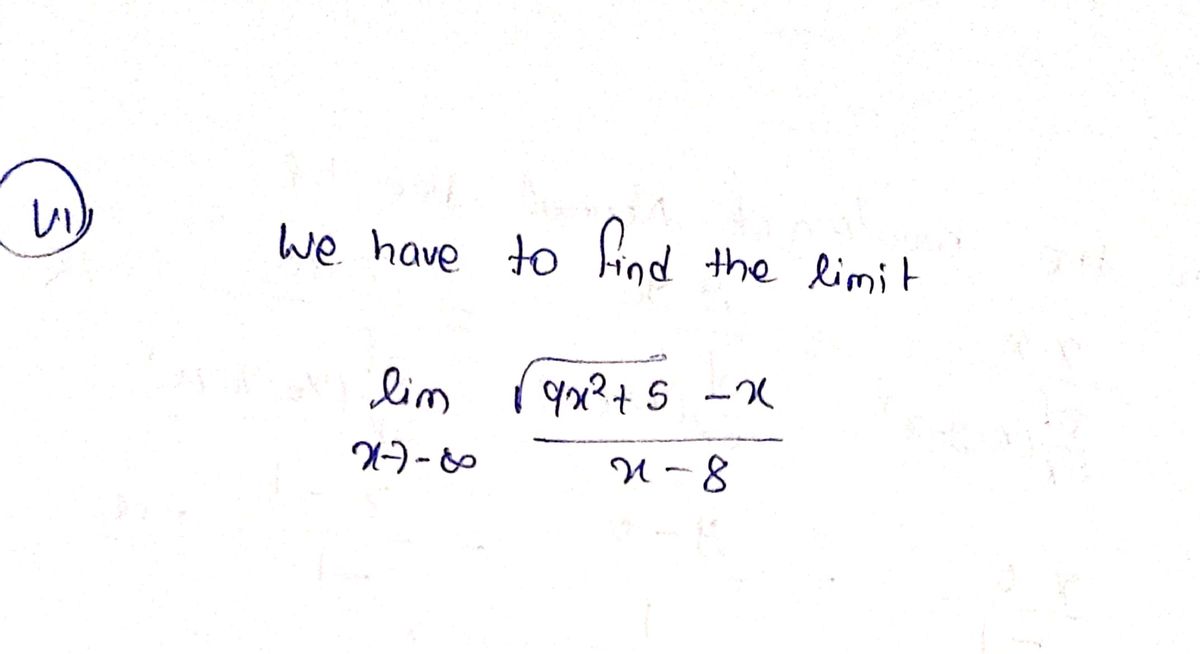 VI)
We have to find the limit
lim √(9x²+5) -x
x→-∞ x-8